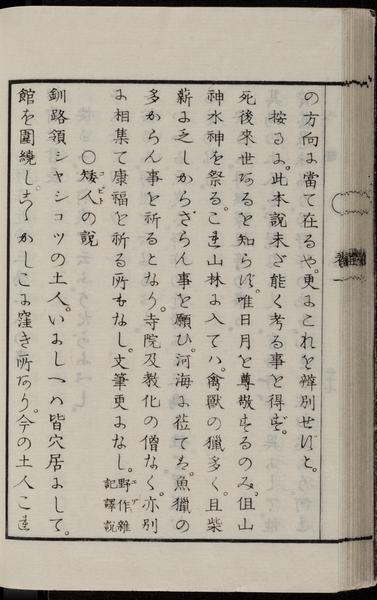 の方向に當て在るや。更にこれを辨別せずと。
按るに。此本說未ざ能く考る事を得ず。
死後來世あるを知らず。唯日月を尊敬するのみ。但山
神水神を祭る。こは山林に入てハ。禽獸の獵多く。且柴
薪に乏しからざらん事を願ひ。河海に莅ては。魚獵の
多からん事を祈るとなり。寺院及敎化の僧なく。亦別
に相集て康福を祈る所もなし。文筆更になし。野作雜
記譯說
〇矮人の說
コビト
釧路領シヤシコツの土人。いにしへハ皆穴居にして。
館を圍繞し。こゝかしこに窪き所あり。今の土人こは